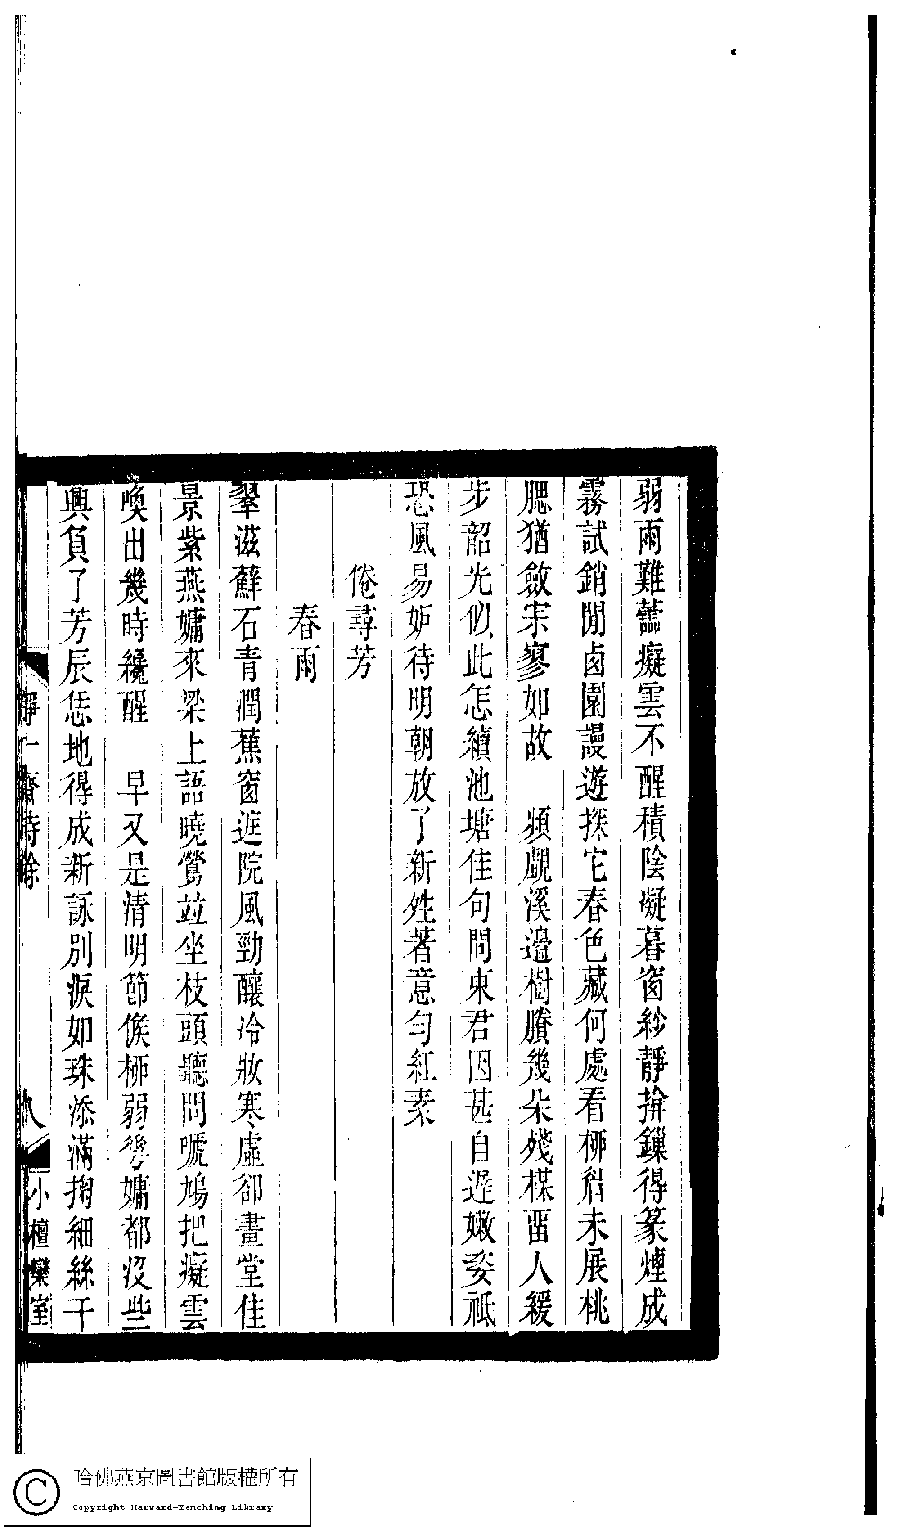 弱雨難癡雲不醒積陰凝暮窗紗靜揜鏁得篆煙成
霧試銷閒卥園謾遊探它春色藏何處看桺未展桃
腮猶斂寥如故　頻覷溪邉樹賸幾朵殘楳畱人緩
步韶光似此怎續池塘佳句問東君因甚自遲嫩祇
恐風易妒待明朝放了新著意勻紅素
倦尋芳
春雨
翠滋蘚石青潤蕉窗遮院風勁釀冷妝寒虛卻畫堂佳
景紫燕慵來梁上語曉鶯竝坐枝頭聽問號鳩把癡雲
喚出幾時纔醒　早又是清明節候桺弱慵都沒些
興負了芳辰恁地得成新詠別淚如珠添滿掬細絲千
靜一齋詩餘
八
小檀欒室
哈佛燕京圖書館版權所有
Copyright Harvard-Yenching Library